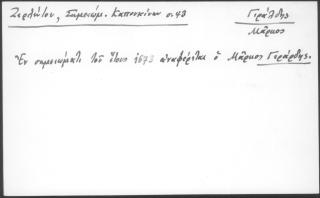 Ζερλέντου, Σημειώμ. Καπουκίνων σ. 43
Γεράρδης
Μᾶρκος
Ἐν σημειώματι τοῦ ἔτους 1673 ἀναφέρεται ὁ Μᾶρκος Γεράρδης.